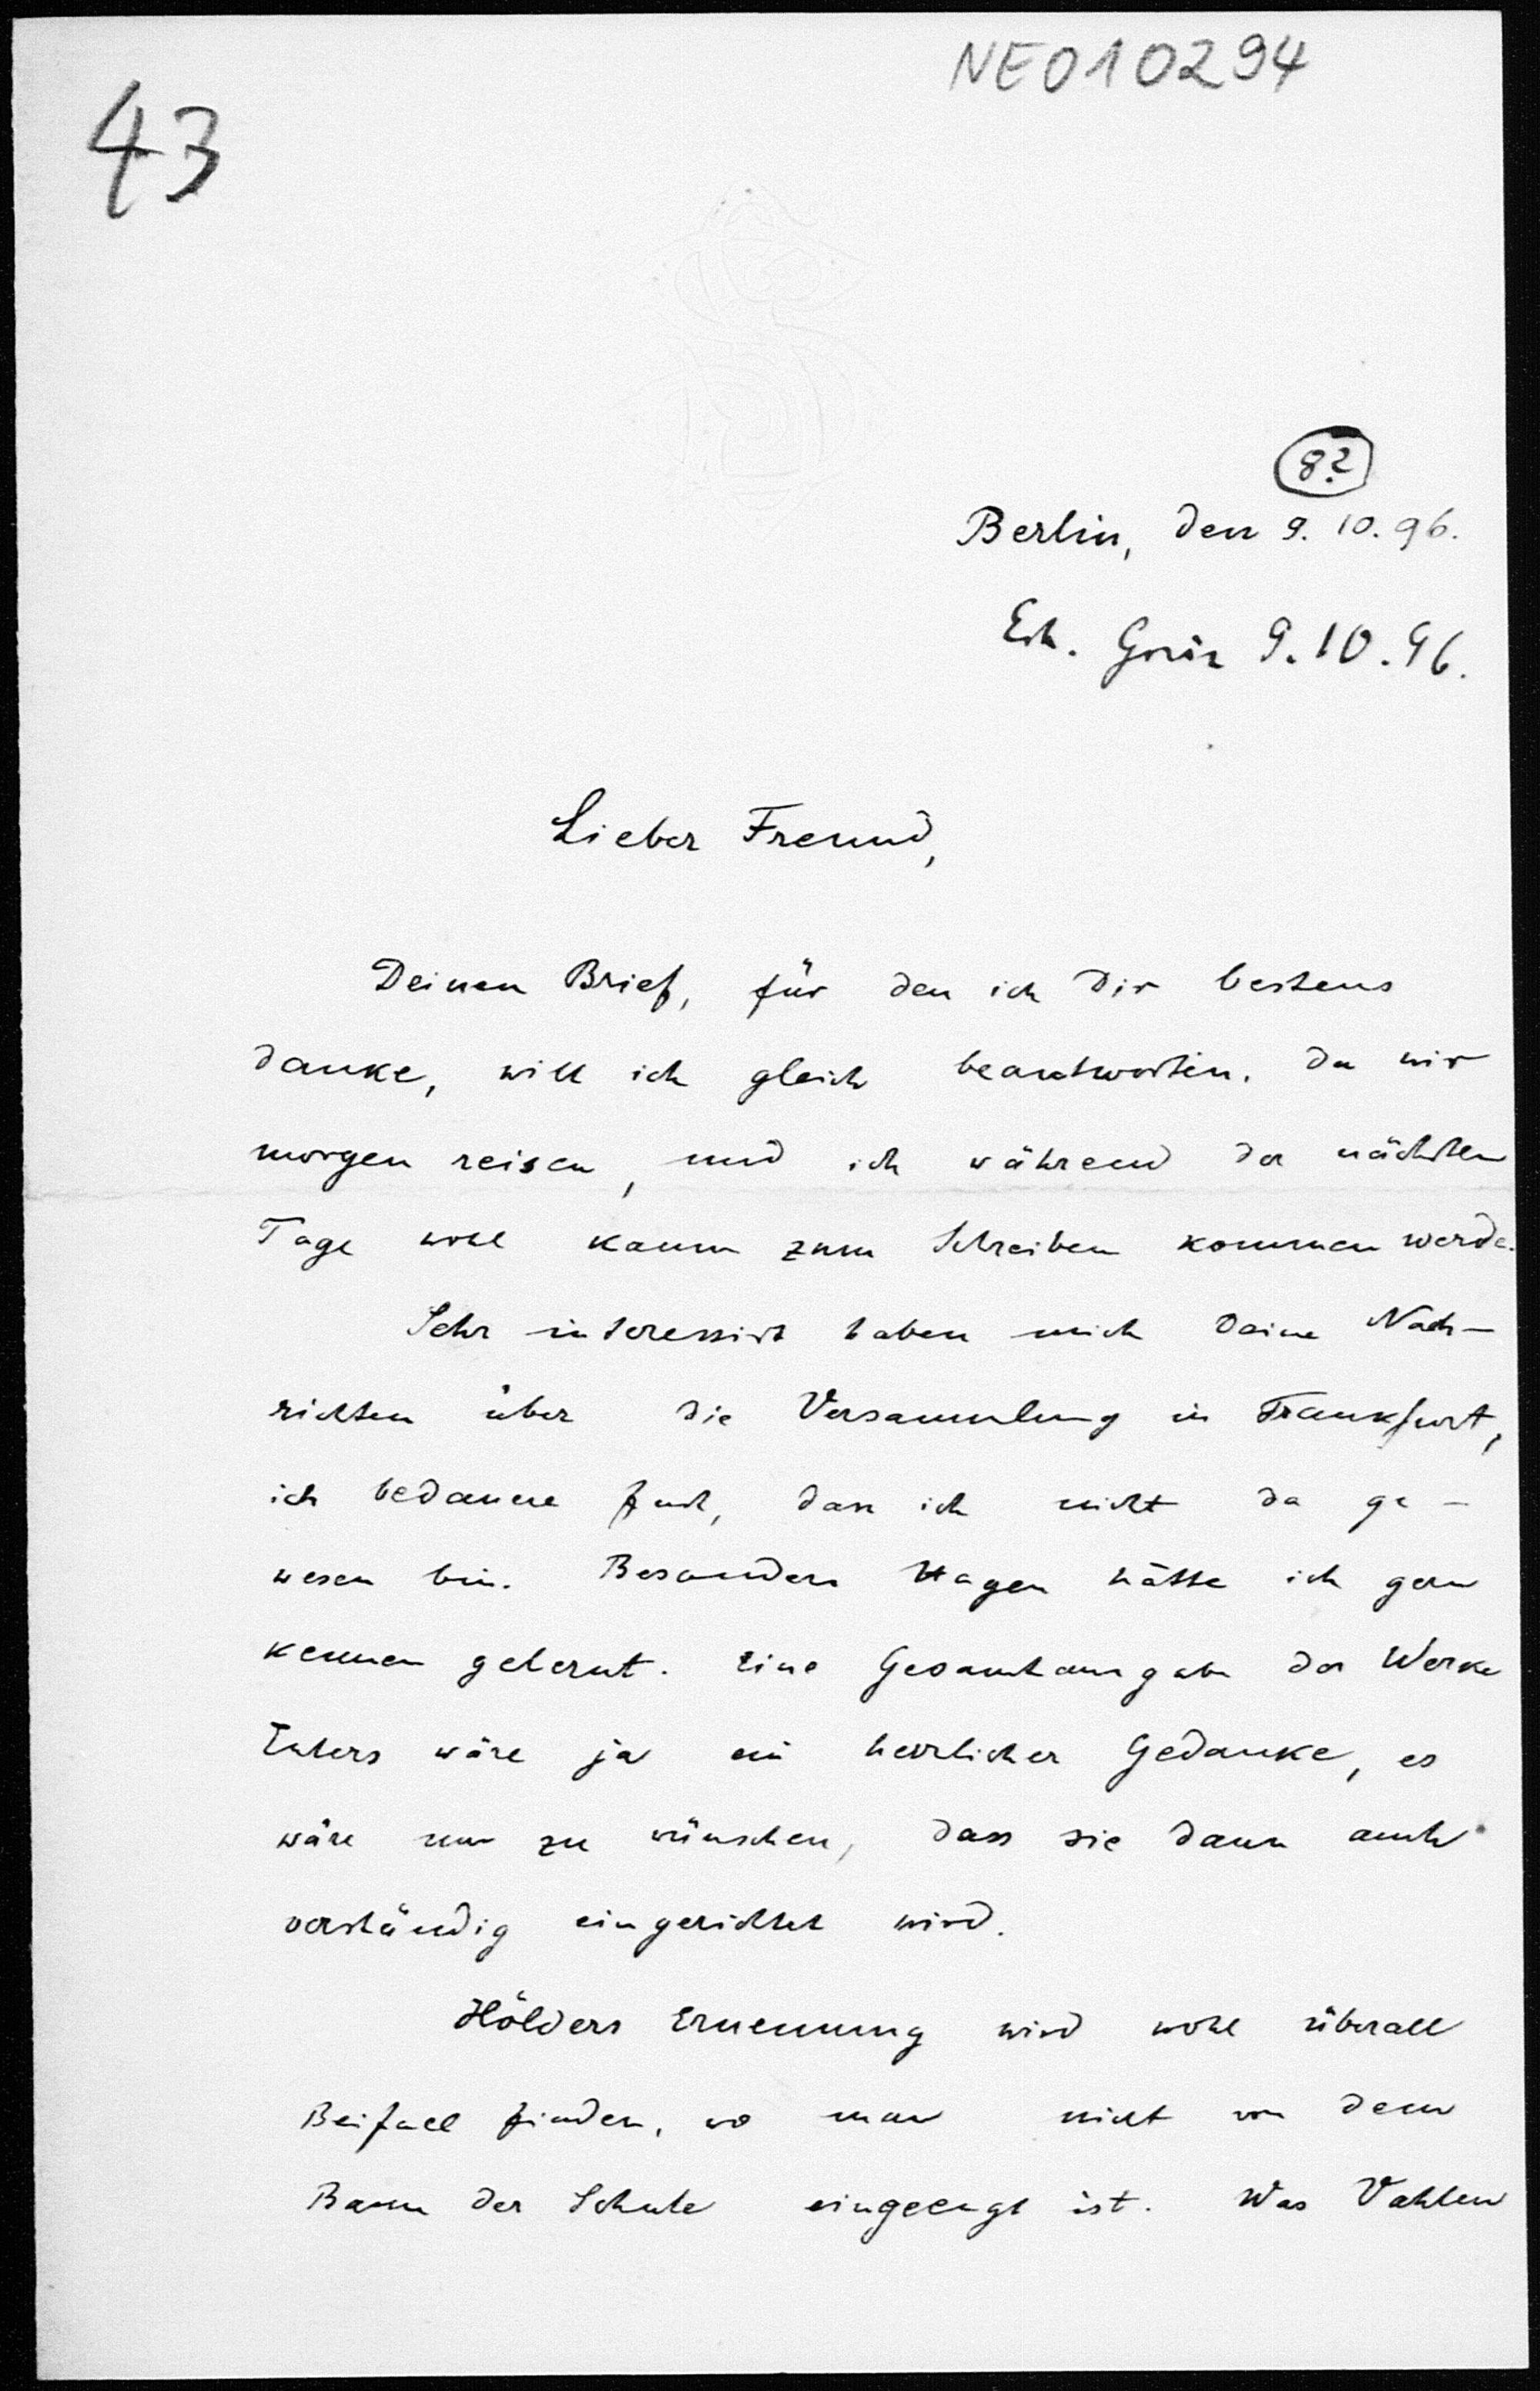 NE010294
43
8?
Berlin, den 9. 10. 96.
Erh. 9. 10. 96.
Lieber Freund,
Deinen Brief, für den ich Dir bestens
danke, will ich gleich beantworten, da wir
morgen reisen, und ich während der nächsten
Tage wohl kaum zum Schreiben kommen werde.
Sehr interessirt haben mich Deine Nach-
richten über die Versammlung in Frankfurt,
ich bedauere fast, dass ich nicht da ge-
wesen bin. Besonders Hagen hätte ich gern
kennen gelernt. Eine Gesamtausgabe der Werke
Eulers wäre ja ein herrlicher Gedanke, es
wäre nur zu wünschen, dass sie dann auch
verständig eingerichtet wird.
Hölders Ernennung wird wohl überall
Beifall finden, wo man nicht von dem
Bann der Schule eingeengt ist. Was Vahlen